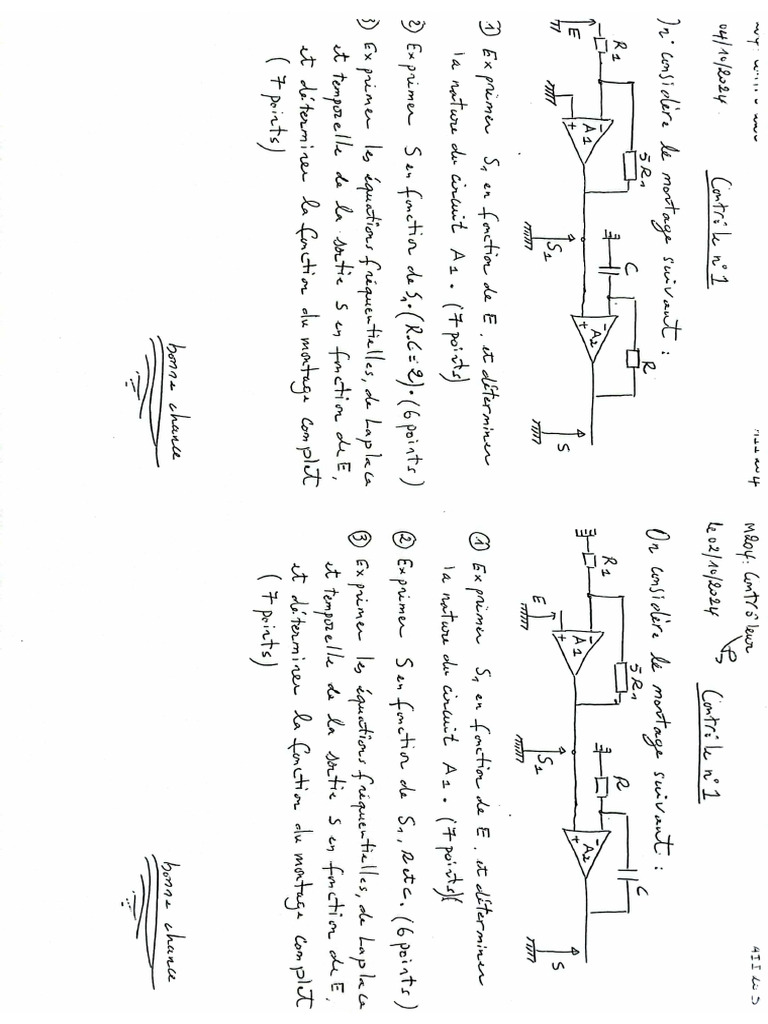 04/10/2024
Contrôle n°1
On considère le montage suivant :
E
R1
5R1
A1
-
+
S1
C
R
A2
-
+
S
① Exprimer S1 en fonction de E, et déterminer
la nature du circuit A1. (7 points)
② Exprimer S en fonction de S1. (R.C=2). (6 points)
③ Exprimer les équations fréquentielles, de Laplace
et temporelle de la sortie S en fonction de E,
et déterminer la fonction du montage complet
(7 points)
bonne chance
M204: Contrôleur
Le 02/10/2024
Contrôle n°1
On considère le montage suivant :
R1
5R1
E
A1
-
+
S1
R
C
A2
-
+
S
① Exprimer S1 en fonction de E, et déterminer
la nature du circuit A1. (7 points)
② Exprimer S en fonction de S1, R et C. (6 points)
③ Exprimer les équations fréquentielles, de Laplace
et temporelle de la sortie S en fonction de E,
et déterminer la fonction du montage complet
(7 points)
bonne chance